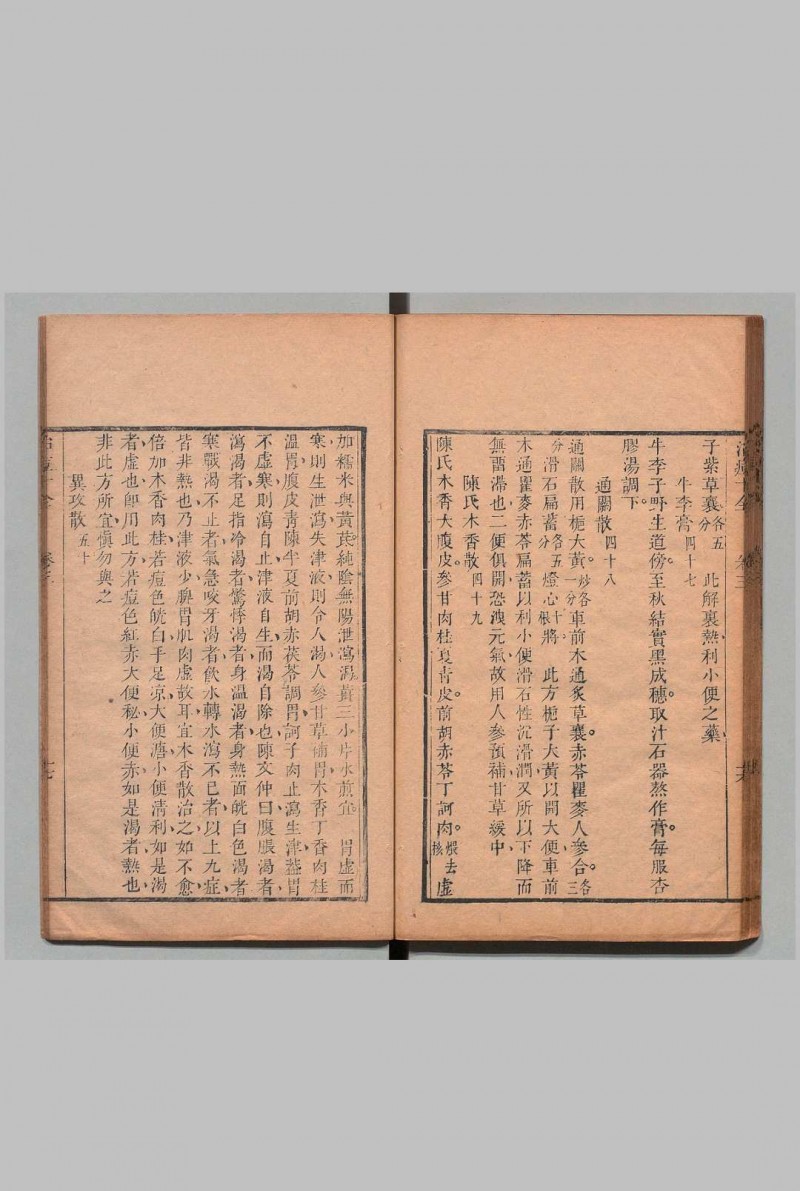 子紫草蓑各五分　此解裏熱利小便之藥
牛李膏四十七
牛李子野生道傍至秋結實黑成穗取汁石器熬作膏每服杏
膠湯調下
通關散四十八
通關散用梔大黃炒各一分車前木通炙草蓑赤苓瞿麥人參合各三
分滑石扁蓄各五分燈心十根將　此方梔子大黃以開大便車前
木通瞿麥赤苓扁蓄以利小便滑石性沉滑潤又所以下降而
無留滯也二便俱開恐洩元氣故用人參預補甘草緩中
陳氏木香散四十九
陳氏木香大腹皮參甘肉桂夏青皮前胡赤苓丁訶肉煨去核虛
加糯米與黃芪純陰無陽泄瀉渴薑三小片水煎宜　胃虛而
寒則生泄瀉失津液則令人渴人參甘草補胃木香丁香肉桂
溫胃腹皮青陳半夏前胡赤茯苓調胃訶子肉止瀉生津蓋胃
不虛寒則瀉自止津液自生而渴自除也陳文仲曰腹脹渴者
瀉渴者足指冷渴者驚悸渴者身溫渴者身熱面㿠白色渴者
寒戰渴不止者氣急咬牙渴者飲水轉水瀉不已者以上九症
皆非熱也乃津液少脾胃肌肉虛故耳宜木香散治之如不愈
倍加木香肉桂若痘色㿠白手足涼大便溏小便清利如是渴
者虛也卽用此方若痘色紅赤大便秘小便赤如是渴者熱也
非此方所宜愼勿與之
異攻散五十